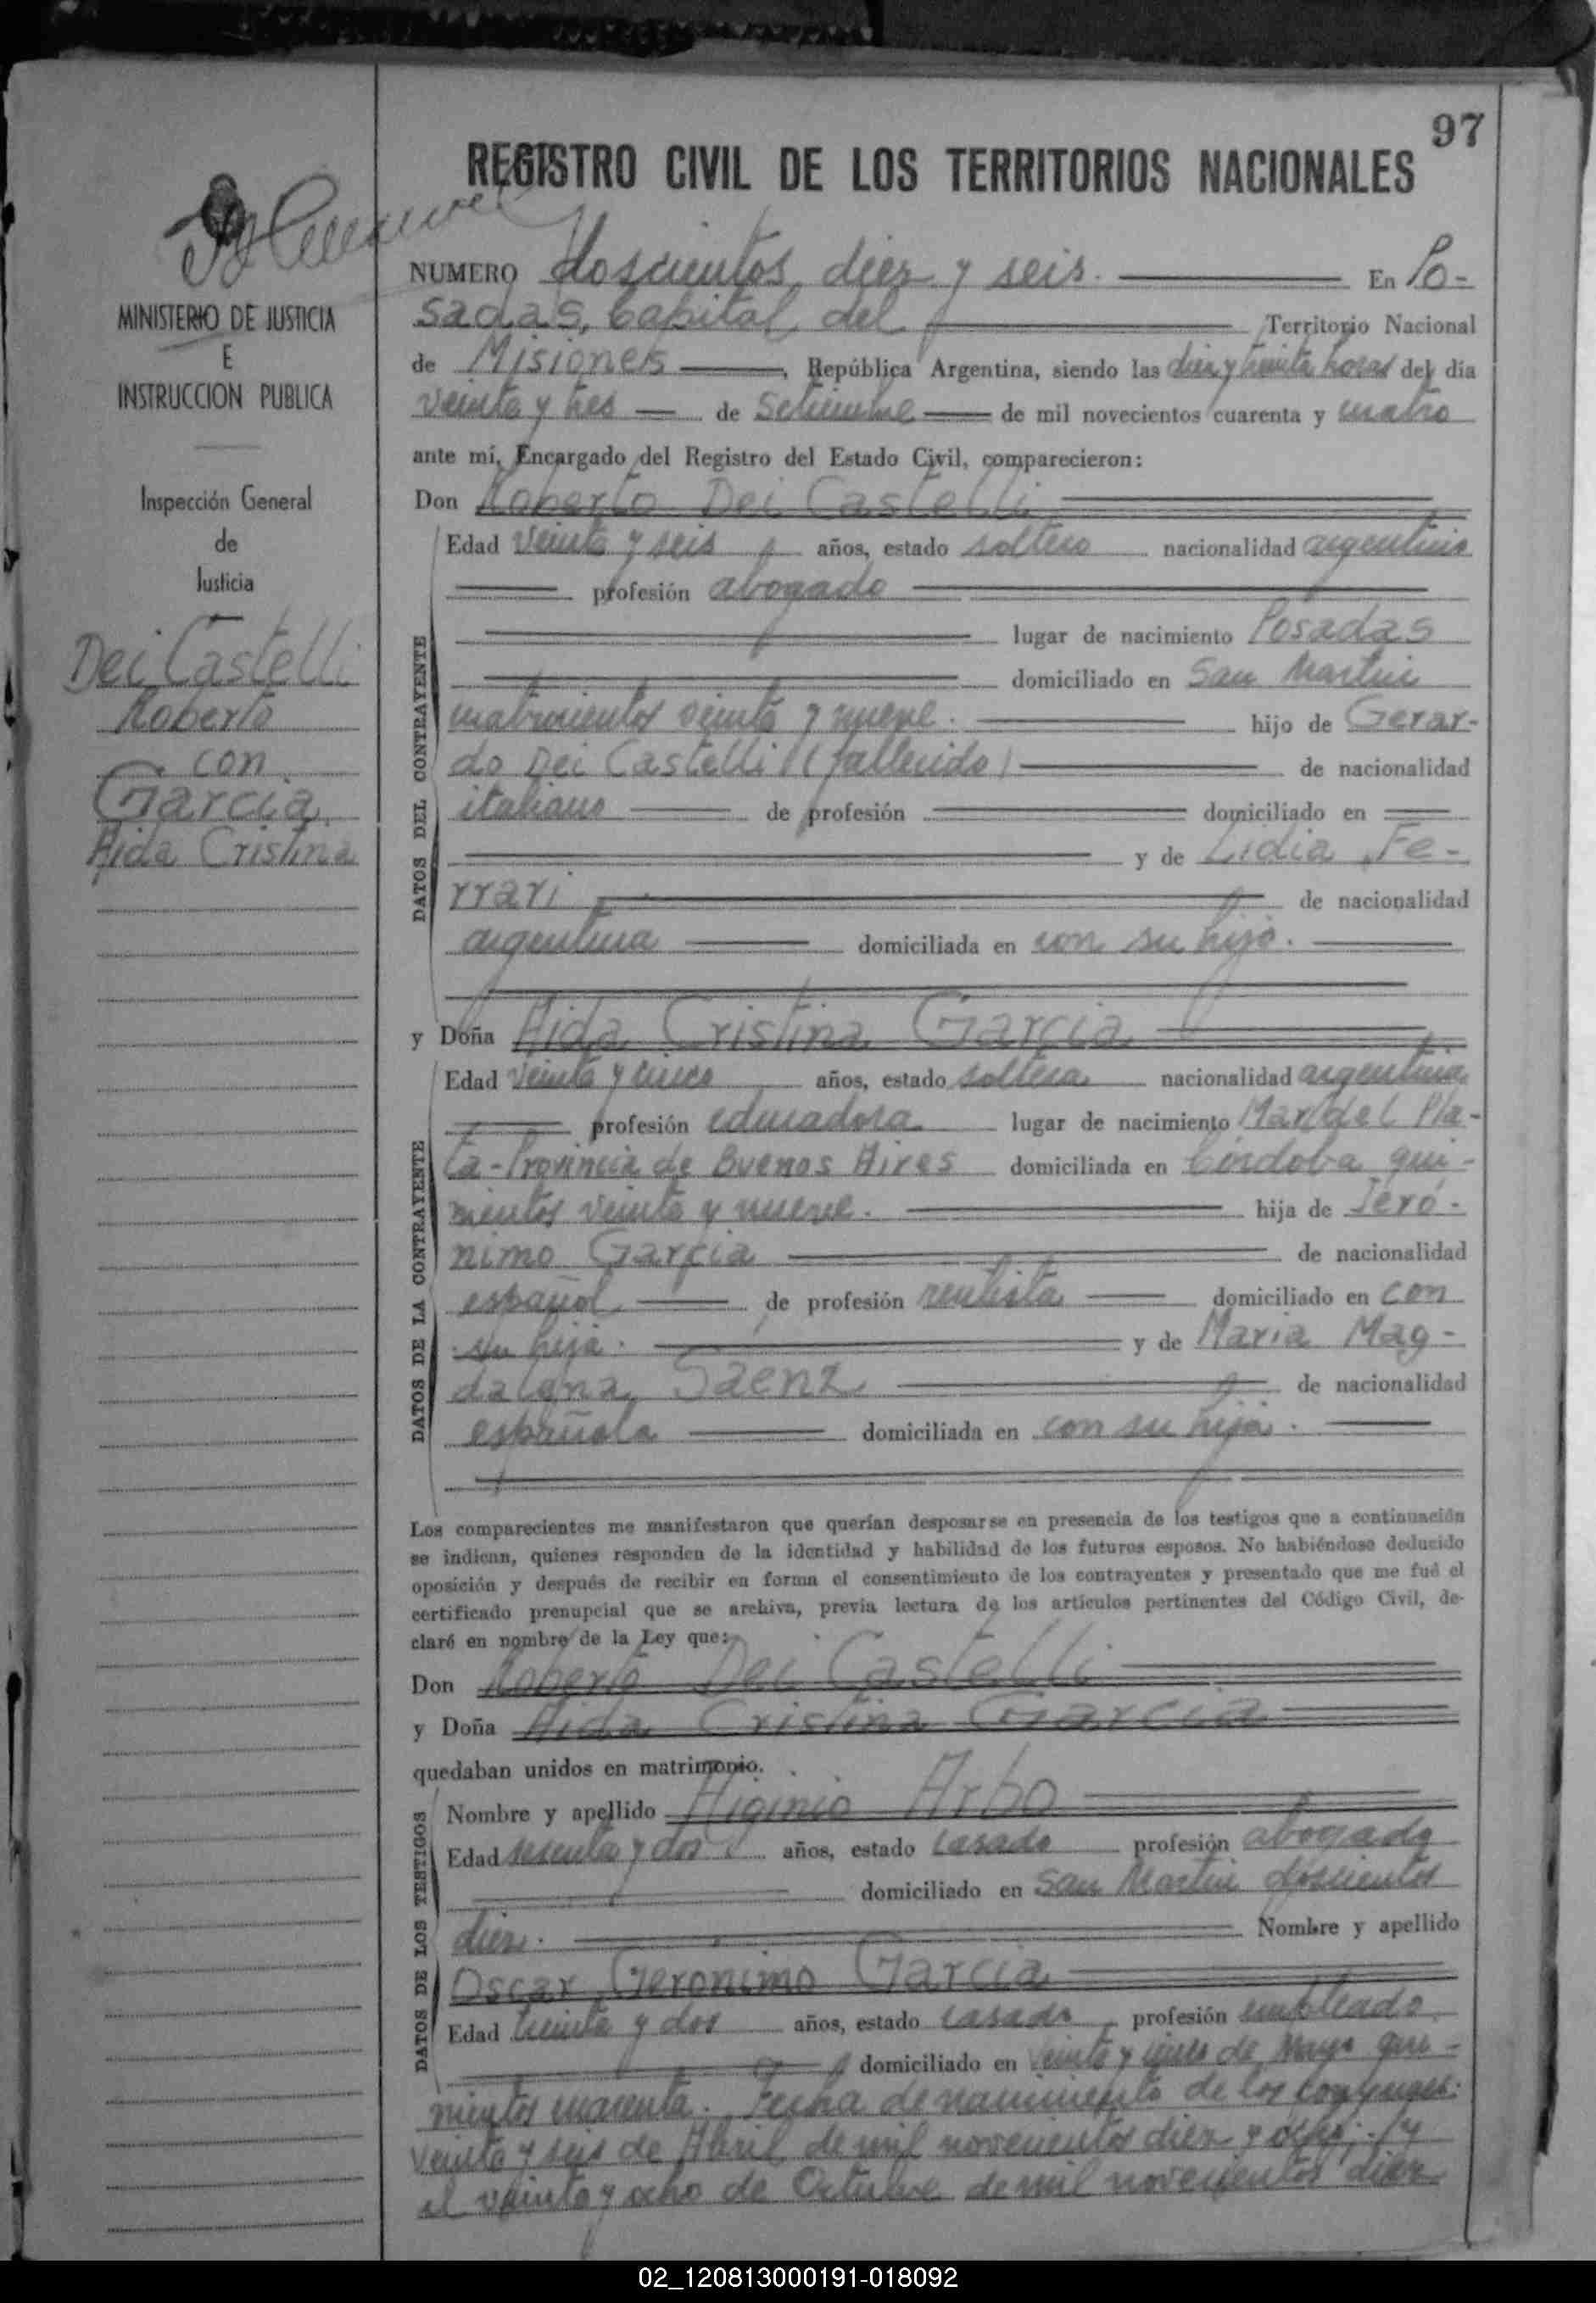 97
REGISTRO CIVIL DE LOS TERRITORIOS NACIONALES
MINISTERIO DE JUSTICIA
E
INSTRUCCION PUBLICA
Inspección General
de
Justicia
Dei Castelli
Roberto
con
Garcia
Aida Cristina
NUMERO doscientos diez y seis. En Po-
sadas, Capital del Territorio Nacional
de Misiones, República Argentina, siendo las diez y treinta horas del día
veinte y tres de Setiembre de mil novecientos cuarenta y cuatro
ante mí, Encargado del Registro del Estado Civil, comparecieron:
Don Roberto Dei Castelli
DATOS DEL CONTRAYENTE
Edad veinte y seis años, estado soltero nacionalidad argentino
profesión abogado
lugar de nacimiento Posadas
domiciliado en San Martin
cuatrocientos veinte y nueve. hijo de Gerar-
do Dei Castelli (fallecido) de nacionalidad
italiano de profesión domiciliado en
y de Lidia Fe-
rrari de nacionalidad
argentina domiciliada en con su hijo.
y Doña Aida Cristina Garcia
DATOS DE LA CONTRAYENTE
Edad veinte y cinco años, estado soltera nacionalidad argentina
profesión educadora lugar de nacimiento Mar del Pla-
ta-Provincia de Buenos Aires domiciliada en Córdoba qui-
nientos veinte y nueve. hija de Jeró-
nimo Garcia de nacionalidad
español de profesión rentista domiciliado en con
su hija. y de Maria Mag-
dalena Saenz de nacionalidad
española domiciliada en con su hija.
Los comparecientes me manifestaron que querían desposarse en presencia de los testigos que a continuación
se indican, quienes responden de la identidad y habilidad de los futuros esposos. No habiéndose deducido
oposición y después de recibir en forma el consentimiento de los contrayentes y presentado que me fué el
certificado prenupcial que se archiva, previa lectura de los artículos pertinentes del Código Civil, de-
claré en nombre de la Ley que:
Don Roberto Dei Castelli
y Doña Aida Cristina Garcia
quedaban unidos en matrimonio.
DATOS DE LOS TESTIGOS
Nombre y apellido Higinio Arbo
Edad sesenta y dos años, estado casado profesión abogado
domiciliado en San Martin doscientos
diez. Nombre y apellido
Oscar Geronimo Garcia
Edad treinta y dos años, estado casado profesión empleado
domiciliado en veinte y cinco de Mayo qui-
nientos cuarenta. Fecha de nacimiento de los conyuges:
veinte y seis de Abril de mil novecientos diez y ocho; y
el veinte y ocho de Octubre de mil novecientos diez
02_120813000191-018092